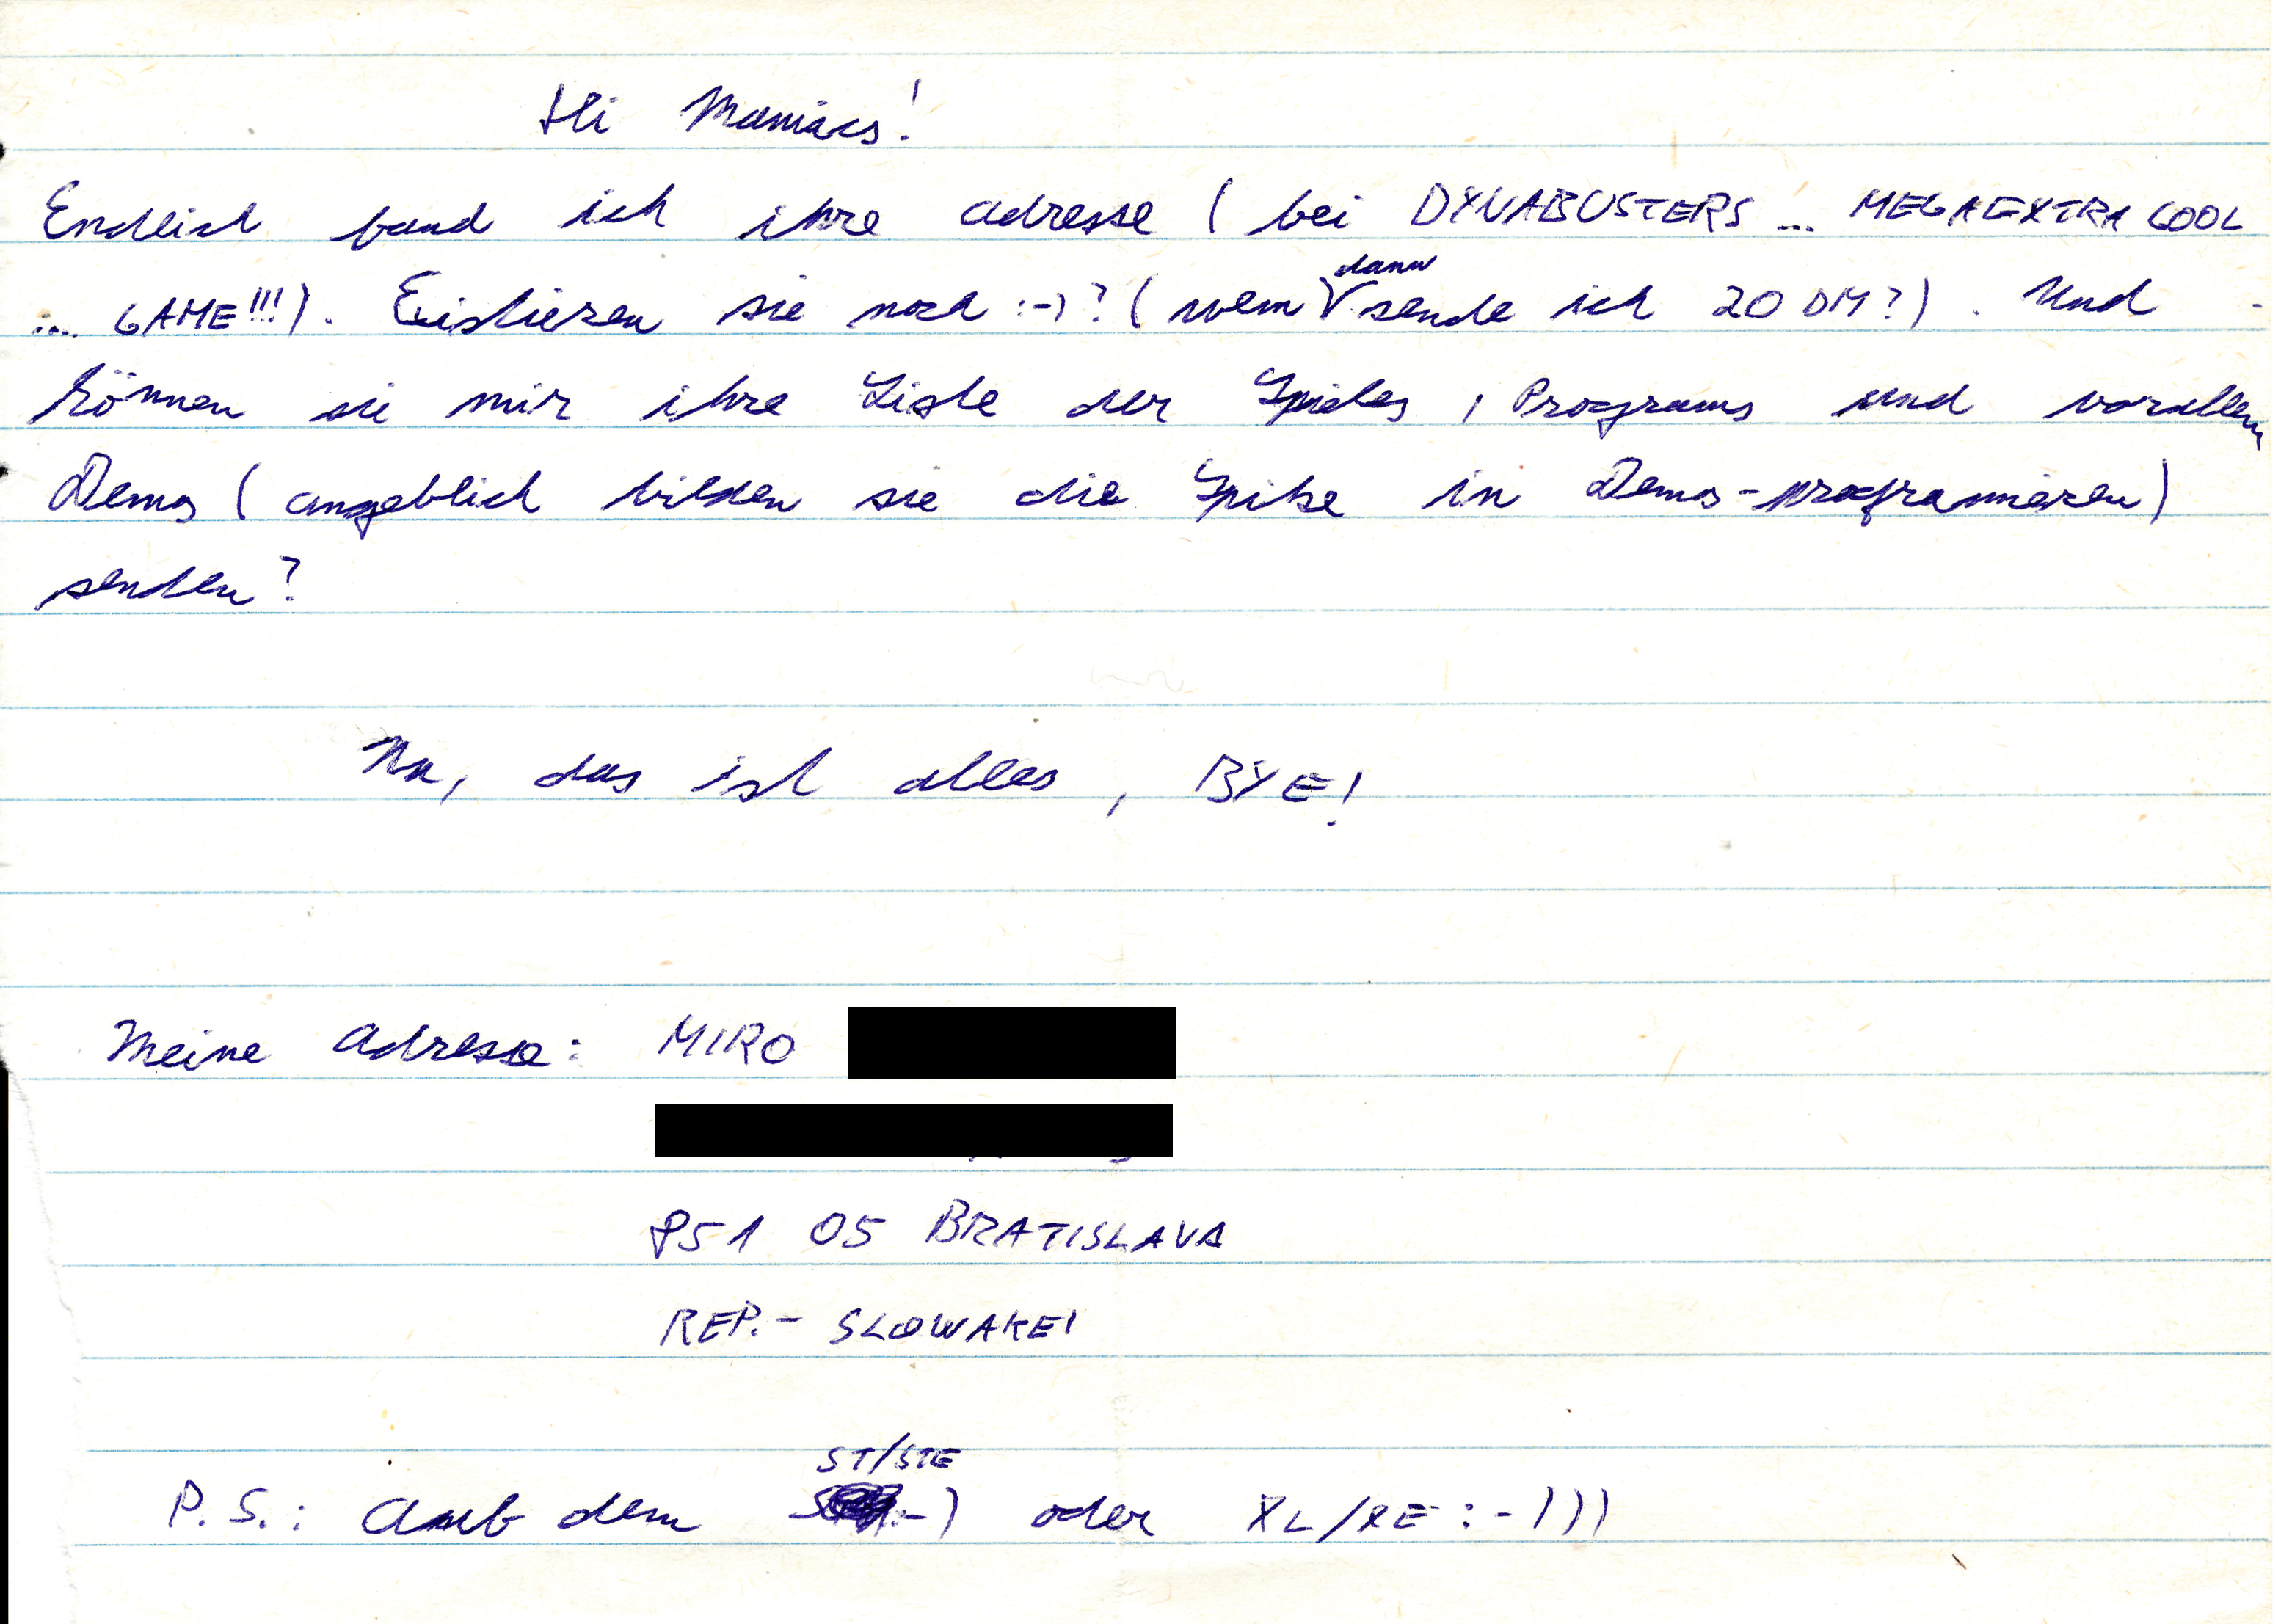 Hi Maniacs!
Endlich fand ich ihre adresse ( bei DYNABUSTERS ... MEGAEXTRA COOL
... GAME!!!). Existieren sie noch :-)? ( wem dann sende ich 20 DM?). Und
können sie mir ihre Liste der Spieles, Programs und vorallem
Demos ( angeblich bilden sie die Spitze in Demos-programmieren)
senden?
Na, das ist alles, BYE!
Meine adresse: MIRO
851 05 BRATISLAVA
REP.- SLOWAKEI
P.S.: Auf dem ST/STE :-) oder XL/XE :-)))